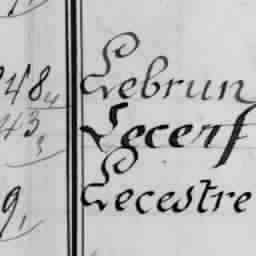 848 4 Lebrun
43 3 Lecerf
9, Lecestre